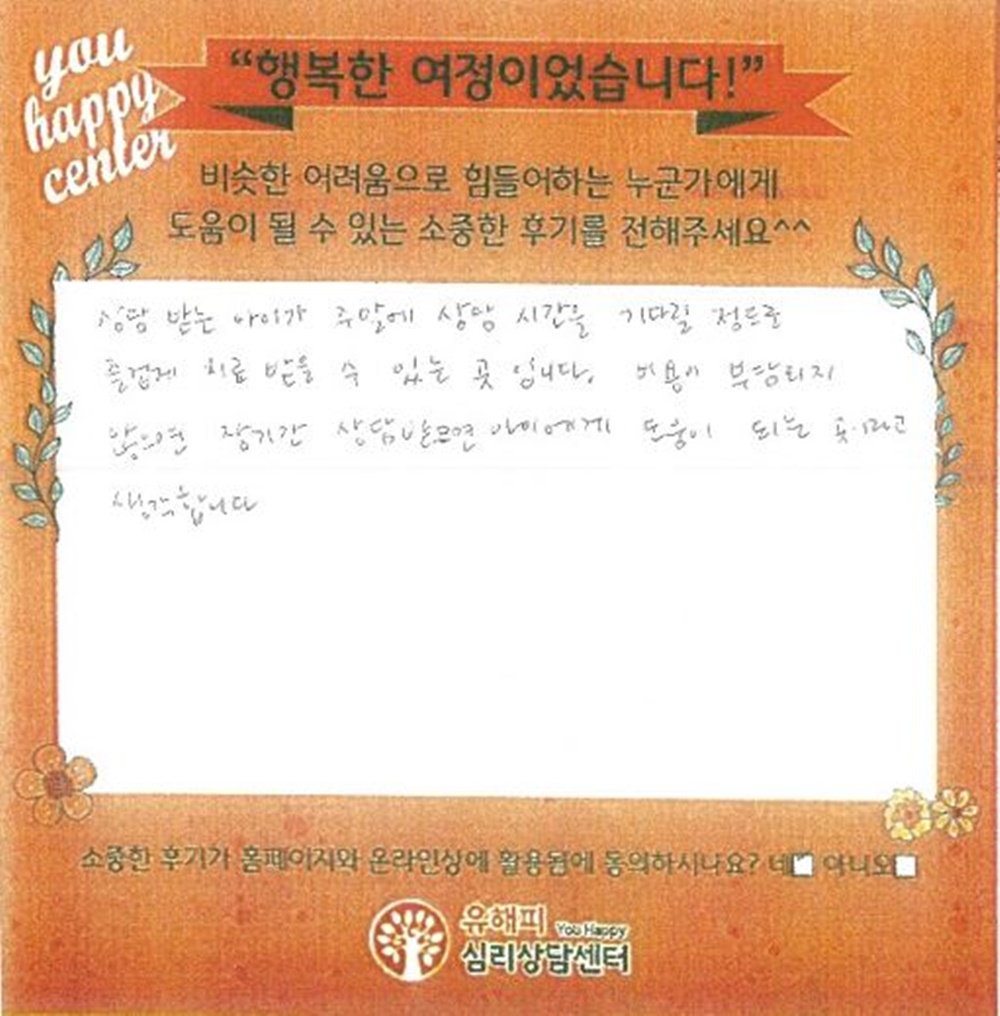 you
happy
center
“행복한 여정이었습니다!”
비슷한 어려움으로 힘들어하는 누군가에게
도움이 될 수 있는 소중한 후기를 전해주세요^^
상담 받는 아이가 주말에 상담 시간을 기다릴 정도로
즐겁게 치료 받을 수 있는 곳 입니다. 비용이 부담되지
않으면 장기간 상담받으면 아이에게 도움이 되는 곳이라고
생각합니다
소중한 후기가 홈페이지와 온라인상에 활용됨에 동의하시나요? 네 아니오
유해피 You Happy
심리상담센터